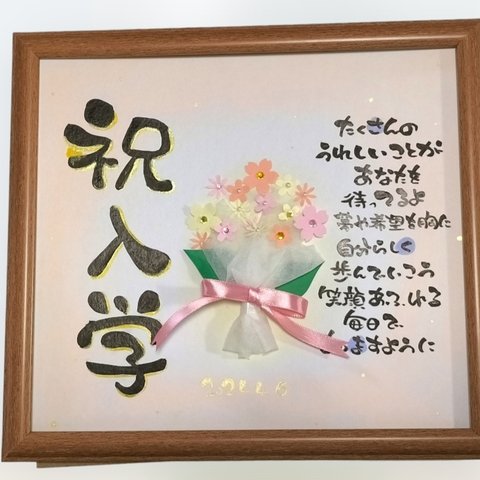 祝入学
たくさんの
うれしいことが
あなたを
待ってるよ
夢や希望を胸に
自分らしく
歩んでいこう
笑顔あふれる
毎日で
ありますように